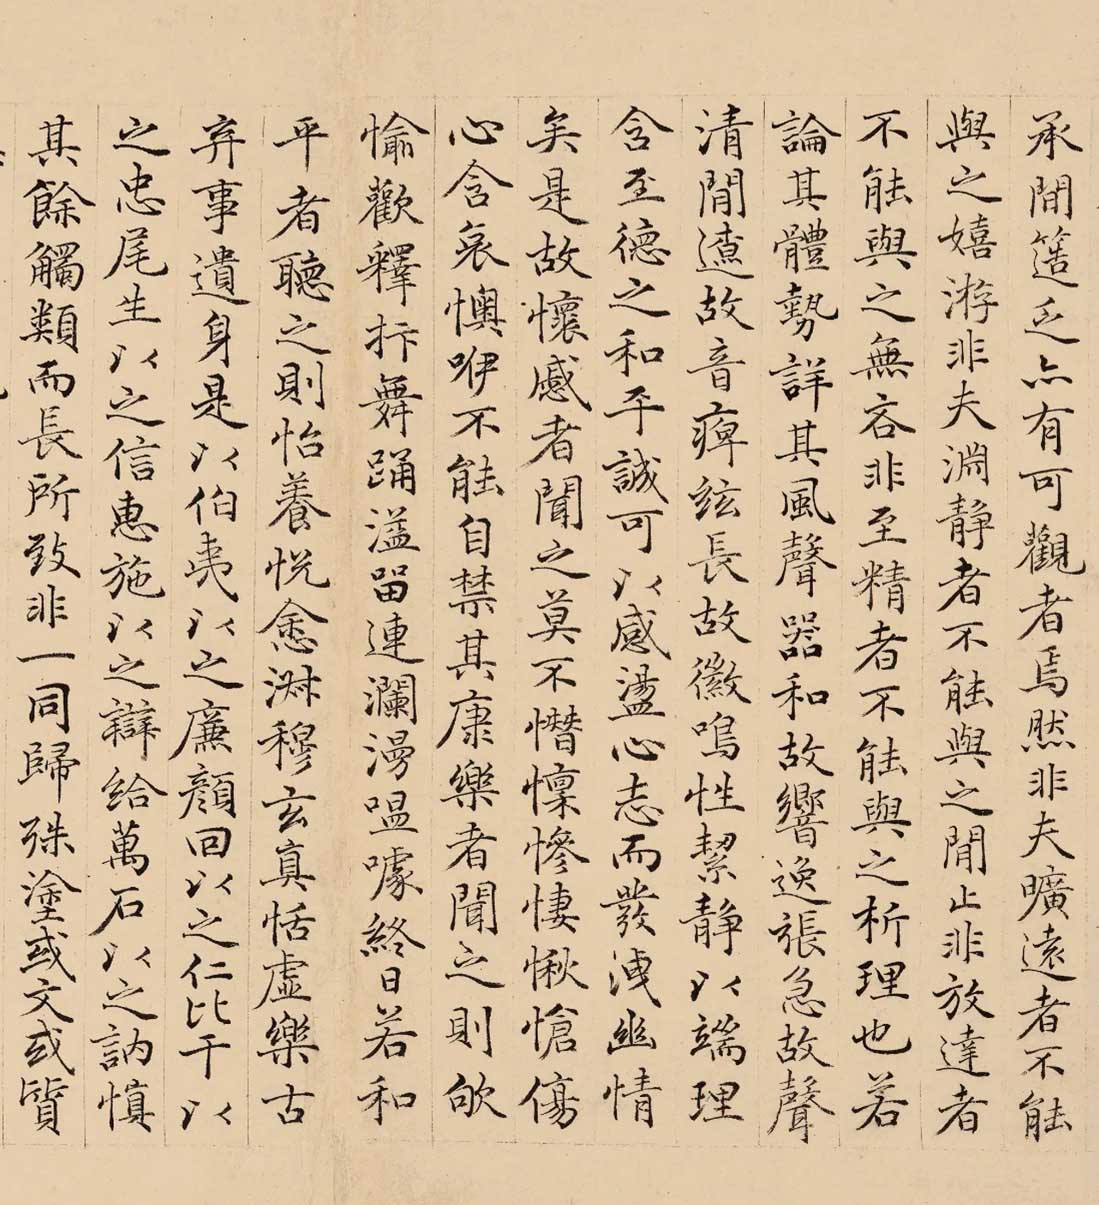 承間簉乏亦有可觀者焉然非夫曠遠者不能
與之嬉游非夫淵靜者不能與之閒止非放達者
不能與之無吝非至精者不能與之析理也若
論其體勢詳其風聲器和故響逸張急故聲
清閒遼故音痺絃長故徽鳴性絜靜以端理
含至德之和平誠可以感盪心志而發洩幽情
矣是故懷慼者聞之莫不憯懍慘悽愀愴傷
心含哀懊咿不能自禁其康樂者聞之則欨
愉歡釋抃舞踊溢留連瀾漫嗢噱終日若和
平者聽之則怡養悅悆淑穆玄真恬虛樂古
弃事遺身是以伯夷以之廉顏回以之仁比干以
之忠尾生以之信惠施以之辯給萬石以之訥慎
其餘觸類而長所致非一同歸殊塗或文或質